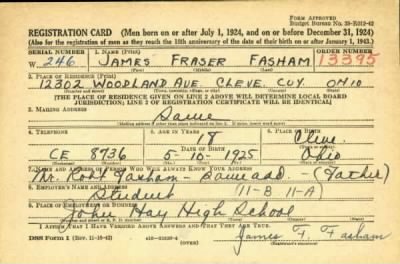 FORM APPROVED
Budget Bureau No. 33-R012-42
REGISTRATION CARD (Men born on or after July 1, 1924, and on or before December 31, 1924)
(Also for the registration of men as they reach the 18th anniversary of the date of their birth on or after January 1, 1943.)
SERIAL NUMBER 1. NAME (Print) ORDER NUMBER
W. 246 JAMES FRASER FASHAM 13395
(First) (Middle) (Last)
2. PLACE OF RESIDENCE (Print)
12302 WOODLAND AVE CLEVE. CUY. OHIO
(Number and street) (Town, township, village, or city) (County) (State)
[THE PLACE OF RESIDENCE GIVEN ON LINE 2 ABOVE WILL DETERMINE LOCAL BOARD
JURISDICTION; LINE 2 OF REGISTRATION CERTIFICATE WILL BE IDENTICAL]
3. MAILING ADDRESS
Same
4. TELEPHONE 5. AGE IN YEARS 6. PLACE OF BIRTH
18 Cleve.
DATE OF BIRTH
CE 8736 5-10-1925 Ohio
7. NAME AND ADDRESS OF PERSON WHO WILL ALWAYS KNOW YOUR ADDRESS
Mr. Robt Fasham - Same add. - (Father)
8. EMPLOYER'S NAME AND ADDRESS
Student 11-B 11-A)
9. PLACE OF EMPLOYMENT OR BUSINESS
John Hay High School
I AFFIRM THAT I HAVE VERIFIED ABOVE ANSWERS AND THAT THEY ARE TRUE.
DSS Form 1 (Rev. 11-16-42)
James F. Fasham